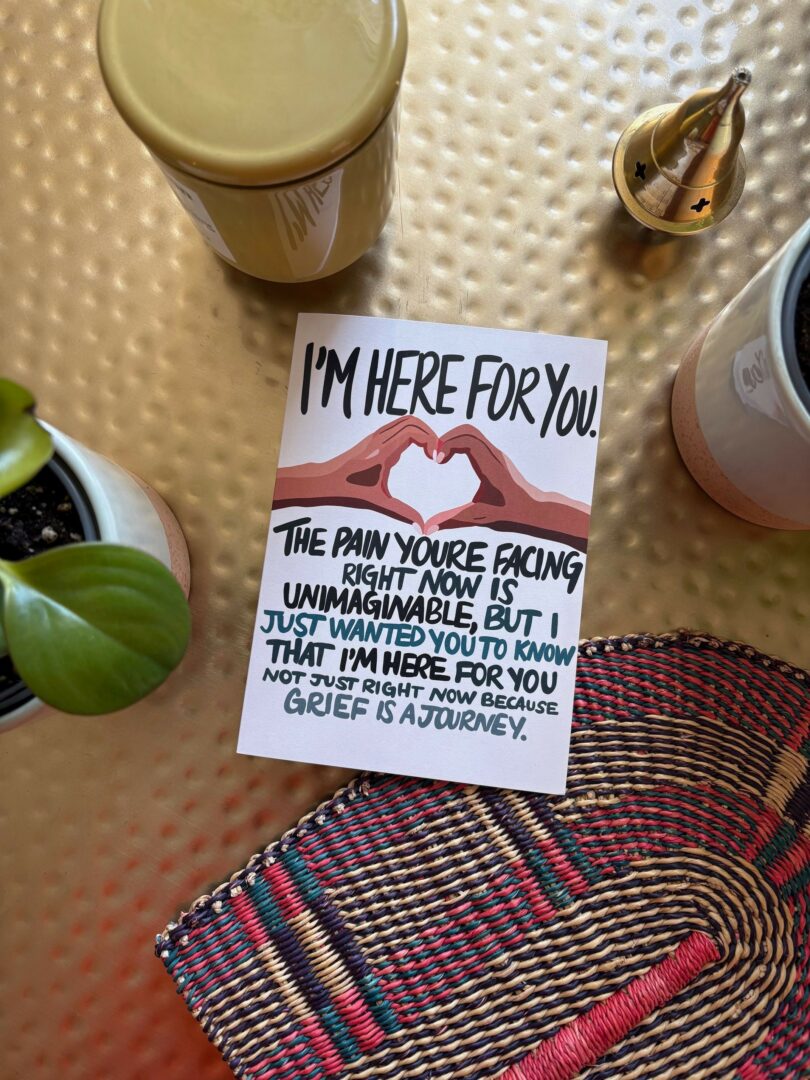 I'M HERE FOR YOU.
THE PAIN YOURE FACING
RIGHT NOW IS
UNIMAGINABLE, BUT I
JUST WANTED YOU TO KNOW
THAT I'M HERE FOR YOU
NOT JUST RIGHT NOW BECAUSE
GRIEF IS A JOURNEY.